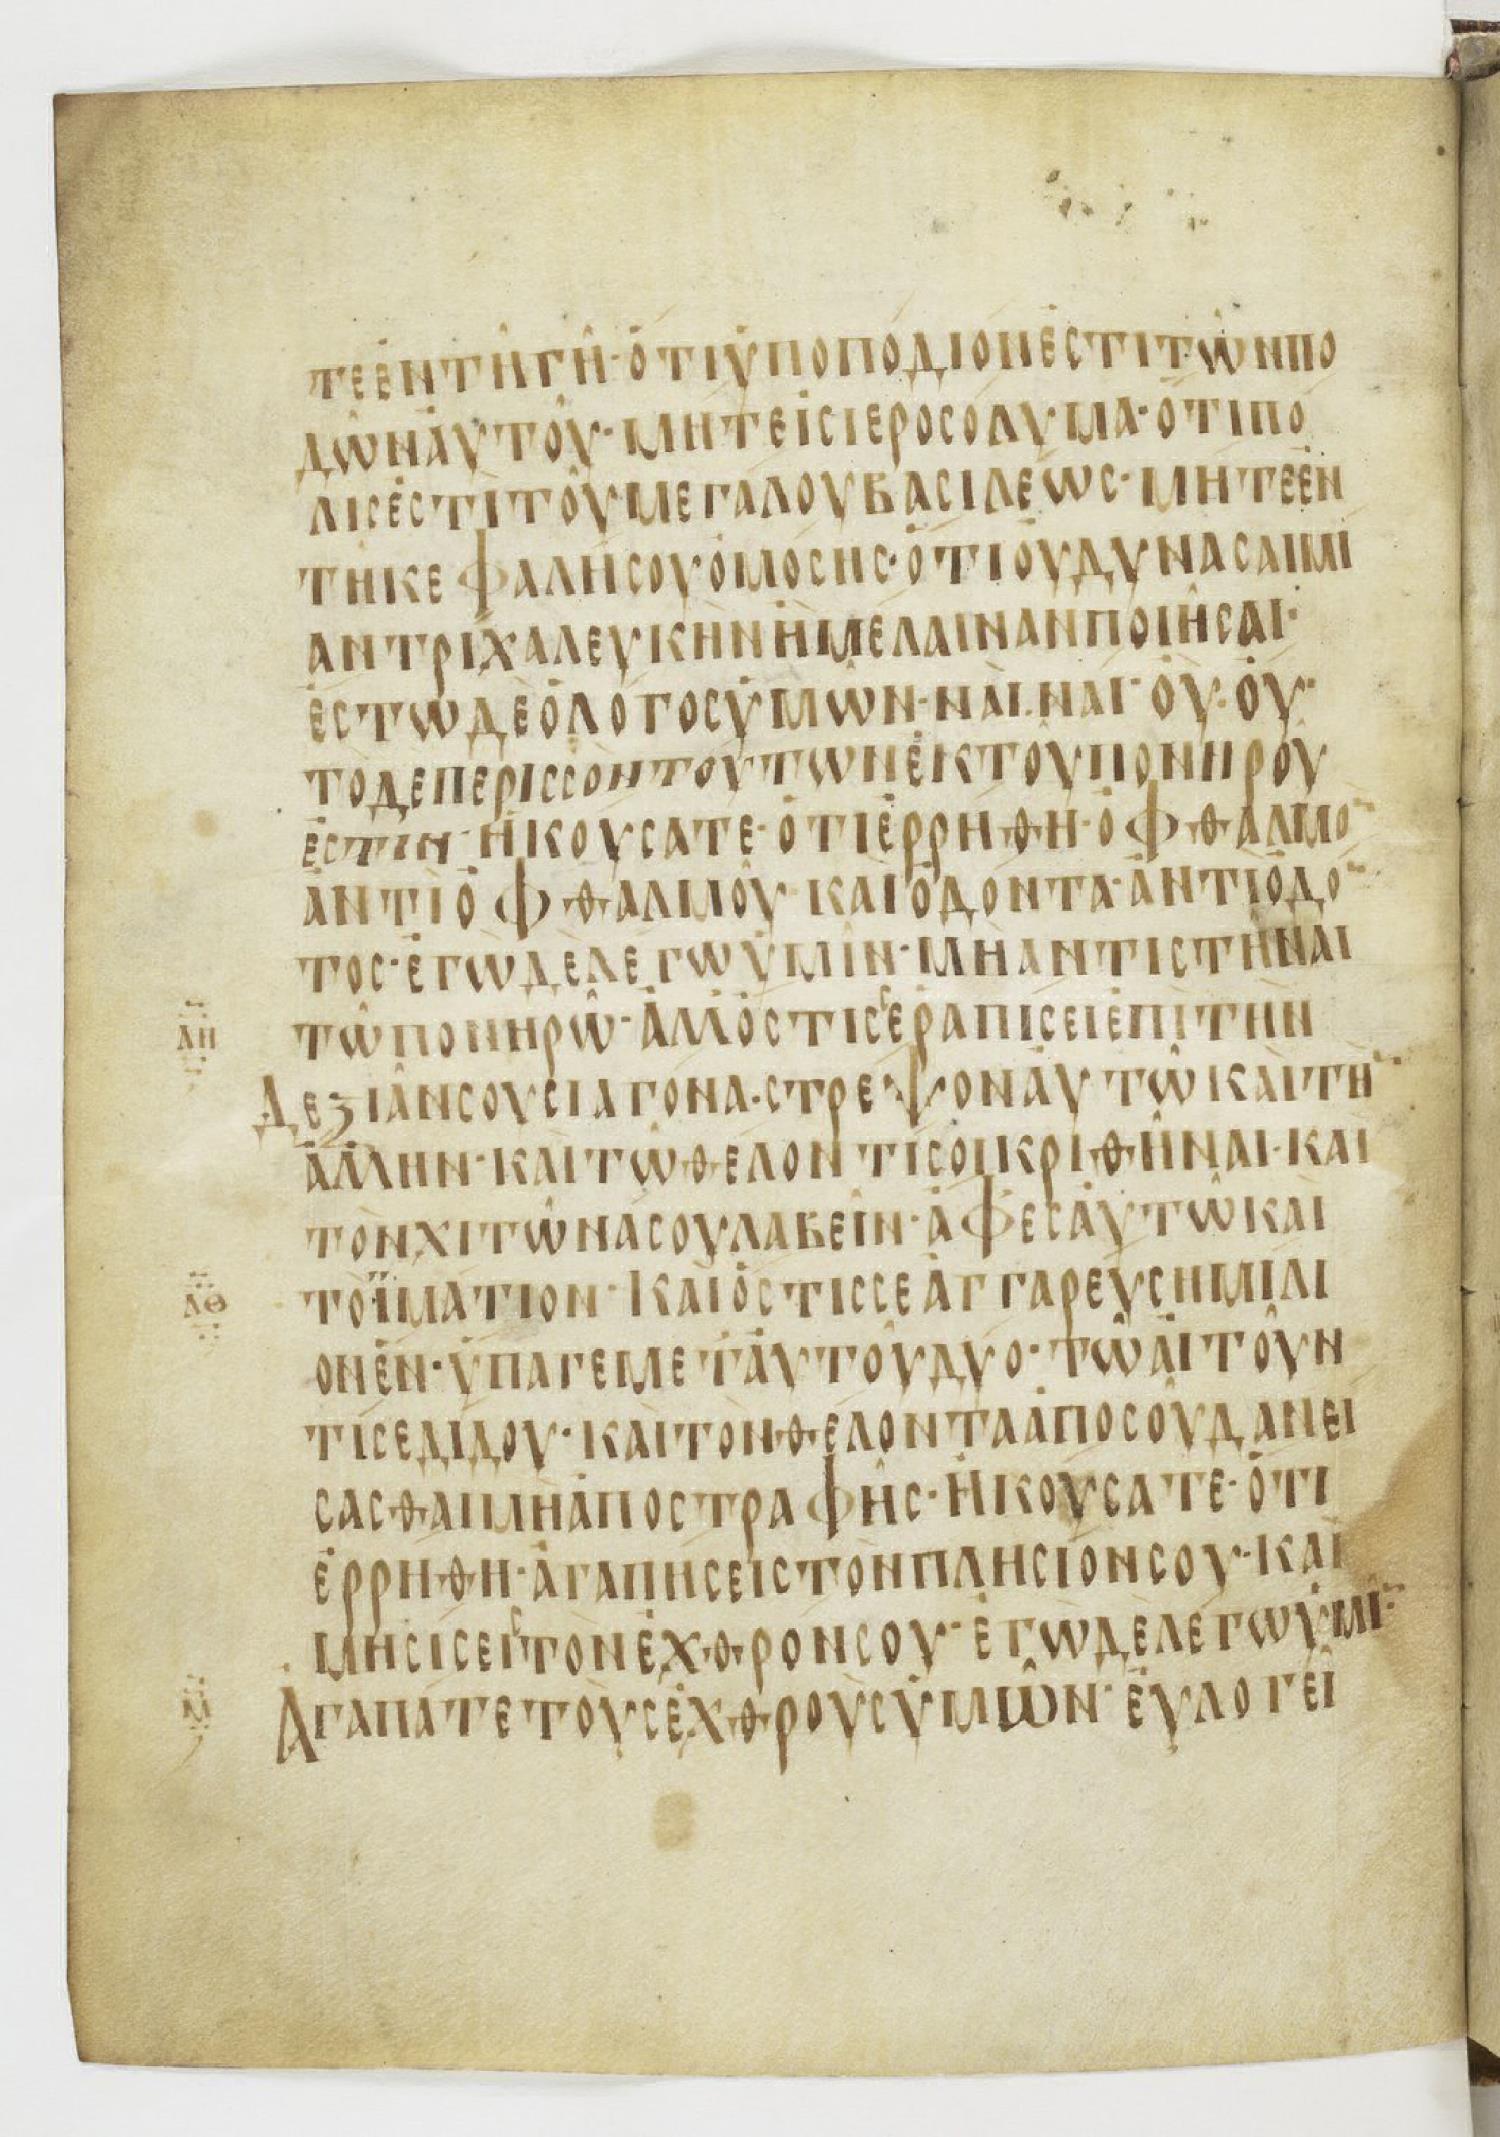 ΤΕΕΝΤΗΓΗ· ΟΤΙΥΠΟΠΟΔΙΟΝΕΣΤΙΤΩΝΠΟ
ΔΩΝΑΥΤΟΥ· ΜΗΤΕΙΣΙΕΡΟΣΟΛΥΜΑ· ΟΤΙΠΟ
ΛΙΣΕΣΤΙΤΟΥΜΕΓΑΛΟΥΒΑΣΙΛΕΩΣ· ΜΗΤΕΕΝ
ΤΗΚΕΦΑΛΗΣΟΥΟΜΟΣΗΣ· ΟΤΙΟΥΔΥΝΑΣΑΙΜΙ
ΑΝΤΡΙΧΑΛΕΥΚΗΝΗΜΕΛΑΙΝΑΝΠΟΙΗΣΑΙ·
ΕΣΤΩΔΕΟΛΟΓΟΣΥΜΩΝ· ΝΑΙ· ΝΑΙ· ΟΥ· ΟΥ·
ΤΟΔΕΠΕΡΙΣΣΟΝΤΟΥΤΩΝΕΚΤΟΥΠΟΝΗΡΟΥ
ΕΣΤΙΝ· ΗΚΟΥΣΑΤΕ· ΟΤΙΕΡΡΗΘΗ· ΟΦΘΑΛΜΟ¯
ΑΝΤΙΟΦΘΑΛΜΟΥ· ΚΑΙΟΔΟΝΤΑ· ΑΝΤΙΟΔΟ¯
ΤΟΣ· ΕΓΩΔΕΛΕΓΩΥΜΙΝ· ΜΗΑΝΤΙΣΤΗΝΑΙ
ΛΗ ΤΩΠΟΝΗΡΩ· ΑΛΛΟΣΤΙΣΣΕΡΑΠΙΣΕΙΕΠΙΤΗΝ
ΔΕΞΙΑΝΣΟΥΣΙΑΓΟΝΑ· ΣΤΡΕΨΟΝΑΥΤΩΚΑΙΤΗ¯
ΑΛΛΗΝ· ΚΑΙΤΩΘΕΛΟΝΤΙΣΟΙΚΡΙΘΗΝΑΙ· ΚΑΙ
ΤΟΝΧΙΤΩΝΑΣΟΥΛΑΒΕΙΝ· ΑΦΕΣΑΥΤΩΚΑΙ
ΛΘ ΤΟΪΜΑΤΙΟΝ· ΚΑΙΟΣΤΙΣΣΕΑΓΓΑΡΕΥΣΗΜΙΛΙ
ΟΝΕΝ· ΥΠΑΓΕΜΕΤΑΥΤΟΥΔΥΟ· ΤΩΑΙΤΟΥΝ
ΤΙΣΕΔΙΔΟΥ· ΚΑΙΤΟΝΘΕΛΟΝΤΑΑΠΟΣΟΥΔΑΝΕΙ
ΣΑΣΘΑΙΜΗΑΠΟΣΤΡΑΦΗΣ· ΗΚΟΥΣΑΤΕ· ΟΤΙ
ΕΡΡΗΘΗ· ΑΓΑΠΗΣΕΙΣΤΟΝΠΛΗΣΙΟΝΣΟΥ· ΚΑΙ
ΜΗΣΙΣΕΙΣΤΟΝΕΧΘΡΟΝΣΟΥ· ΕΓΩΔΕΛΕΓΩΥΜΙ¯
Μ ΑΓΑΠΑΤΕΤΟΥΣΕΧΘΡΟΥΣΥΜΩΝ· ΕΥΛΟΓΕΙ